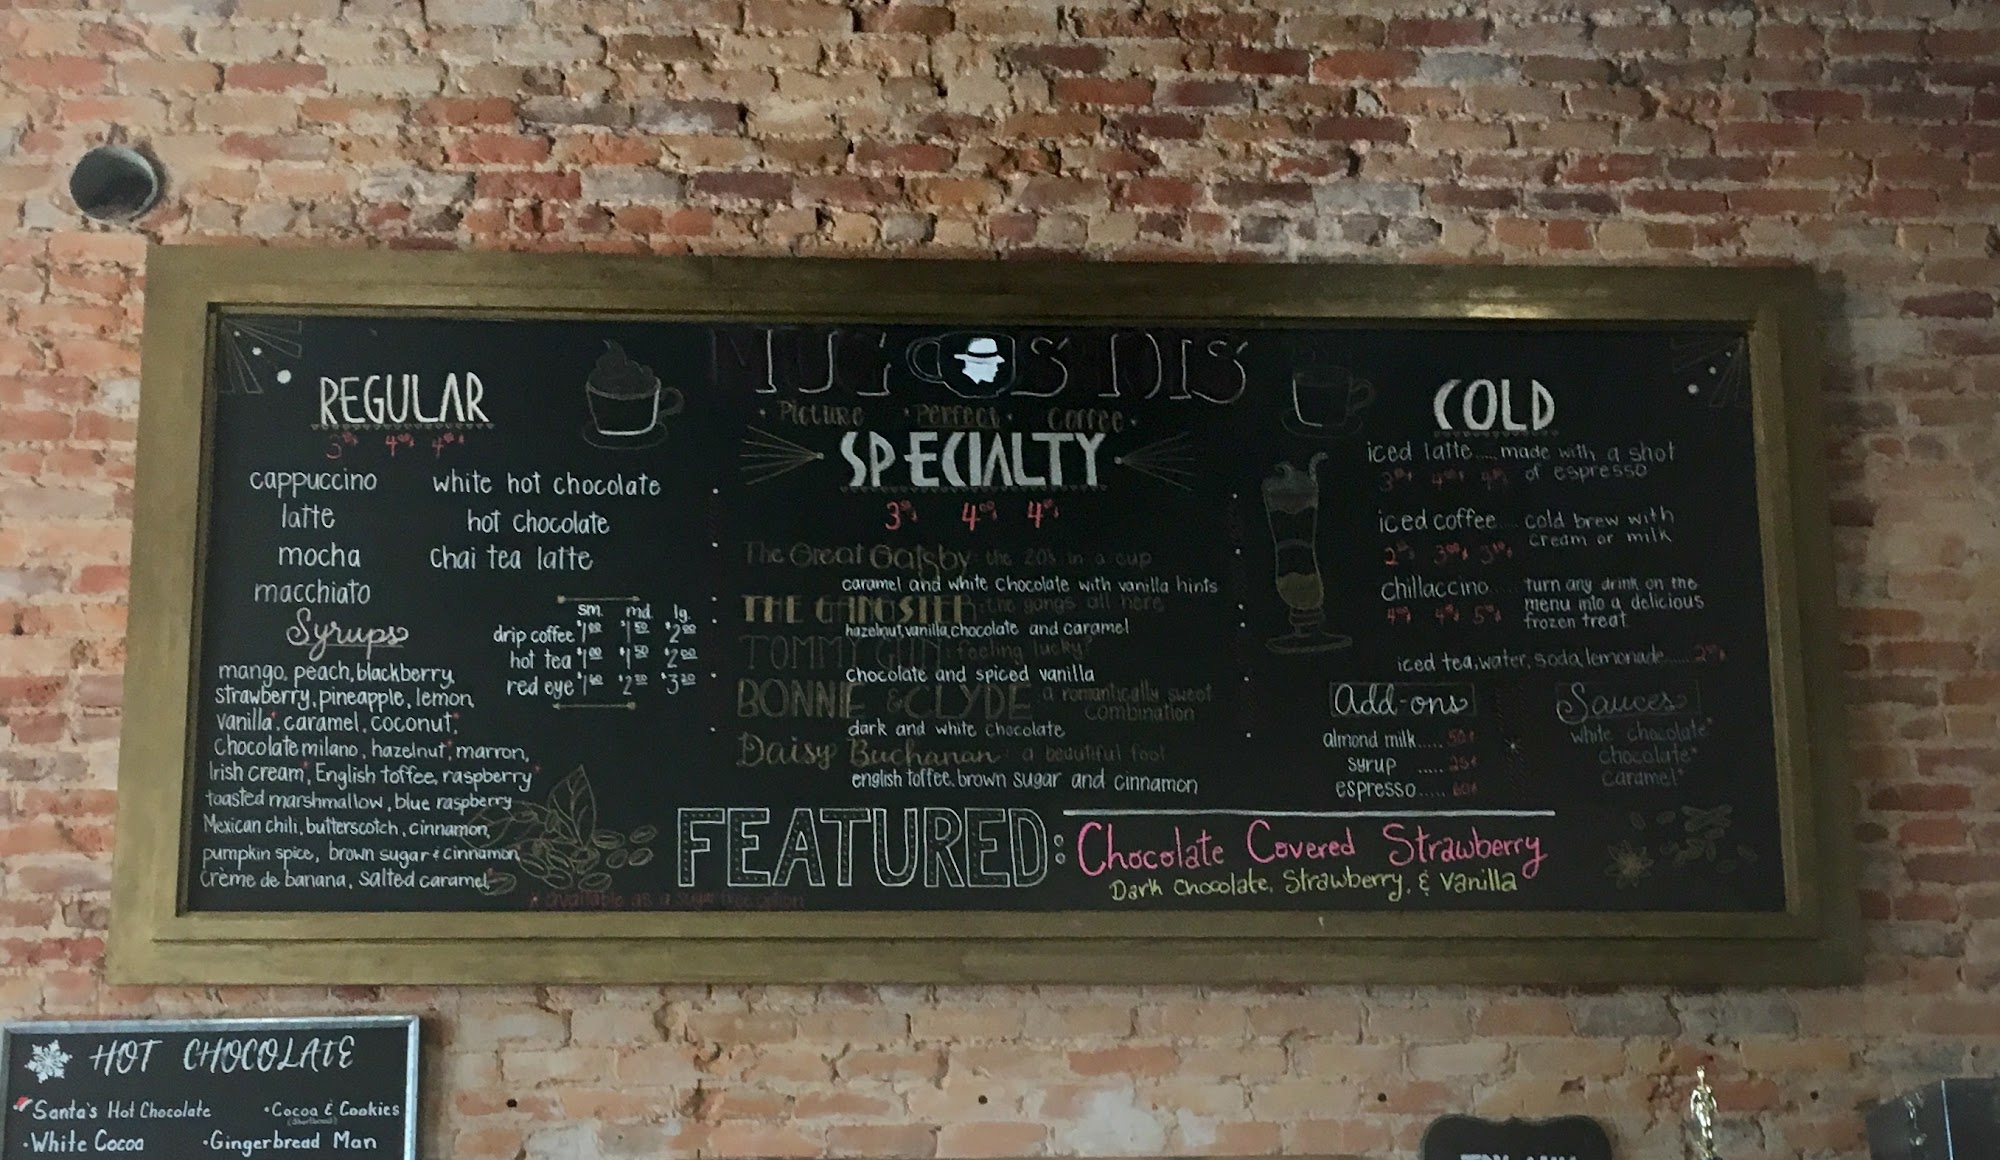 MUGSHOTS
• Picture • Perfect • Coffee •
REGULAR
cappuccino
latte
mocha
macchiato
white hot chocolate
hot chocolate
chai tea latte
sm. md. lg.
drip coffee $1.00 $1.50 $2.00
hot tea $1.00 $1.50 $2.00
red eye
Syrups
mango, peach, blackberry,
strawberry, pineapple, lemon,
vanilla*, caramel, coconut*,
Chocolate milano, hazelnut*, marron,
Irish cream*, English toffee, raspberry*
toasted marshmallow, blue raspberry
Mexican chili, butterscotch, cinnamon,
pumpkin spice, brown sugar & cinnamon*
crème de banana, salted caramel*
* available as a sugar free option
SPECIALTY
The Great Gatsby: the 20s in a cup
caramel and white chocolate with vanilla hints
THE GANGSTER: the gangs all here
hazelnut, vanilla, chocolate and caramel
TOMMY GUN: feeling lucky?
chocolate and spiced vanilla
BONNIE & CLYDE: a romantically sweet
combination
dark and white chocolate
Daisy Buchanan: a beautiful fool
english toffee, brown sugar and cinnamon
COLD
iced latte..... made with a shot
of espresso
iced coffee.... cold brew with
cream or milk
chillaccino.... turn any drink on the
menu into a delicious
frozen treat
iced tea, water, soda, lemonade.....
Add-ons
almond milk..... 50¢
syrup ..... 25¢
espresso..... 60¢
Sauces
white chocolate*
chocolate*
caramel*
FEATURED: Chocolate Covered Strawberry
Dark Chocolate, Strawberry, & Vanilla
HOT CHOCOLATE
• Santa's Hot Chocolate
• Cocoa & Cookies
(Shortbread)
• White Cocoa
• Gingerbread Man